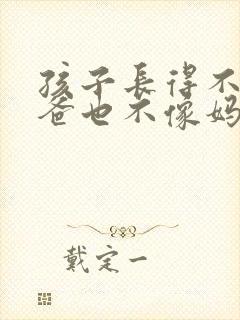 孩子長得不
爸也不像媽
戴定一